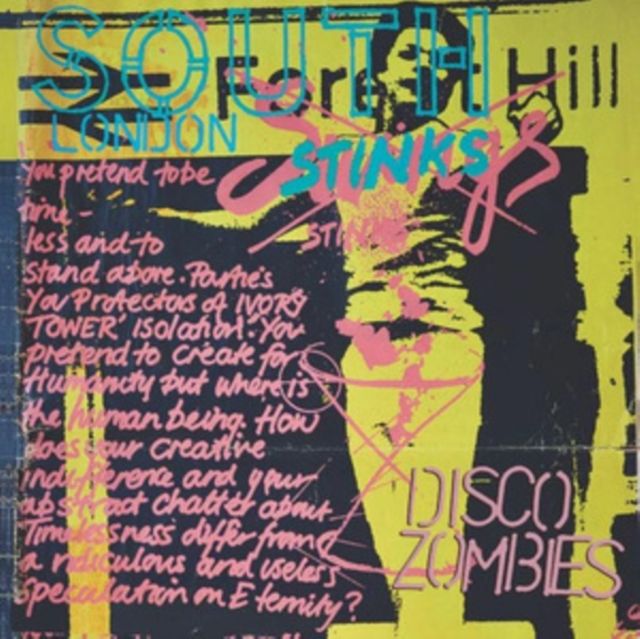 SOUTH
LONDON
Forest Hill
STINKS
STINKS
You pretend to be
time-
less and to
stand above. Partie's
You Protectors of IVORY
TOWER' isolation. You
pretend to create for
Humanity but where is
the human being. How
does your creative
indifference and your
abstract chatter about
Timelessness differ from
a ridiculous and useless
speculation on Eternity?
DISCO
ZOMBIES